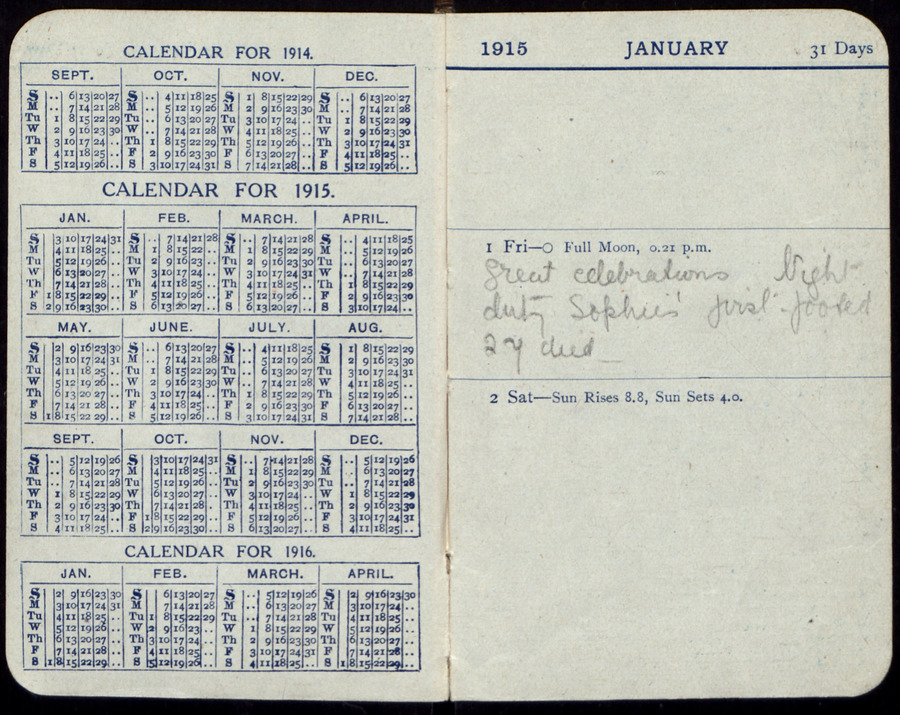 CALENDAR FOR 1914.
SEPT. OCT. NOV. DEC.
S .. 6 13 20 27 S .. 4 11 18 25 S 1 8 15 22 29 S .. 6 13 20 27
M .. 7 14 21 28 M .. 5 12 19 26 M 2 9 16 23 30 M .. 7 14 21 28
Tu 1 8 15 22 29 Tu .. 6 13 20 27 Tu 3 10 17 24 .. Tu 1 8 15 22 29
W 2 9 16 23 30 W .. 7 14 21 28 W 4 11 18 25 .. W 2 9 16 23 30
Th 3 10 17 24 .. Th 1 8 15 22 29 Th 5 12 19 26 .. Th 3 10 17 24 31
F 4 11 18 25 .. F 2 9 16 23 30 F 6 13 20 27 .. F 4 11 18 25 ..
S 5 12 19 26 .. S 3 10 17 24 31 S 7 14 21 28 .. S 5 12 19 26 ..
CALENDAR FOR 1915.
JAN. FEB. MARCH. APRIL.
S .. 3 10 17 24 31 S .. 7 14 21 28 S .. 7 14 21 28 S .. 4 11 18 25
M .. 4 11 18 25 .. M 1 8 15 22 .. M 1 8 15 22 29 M .. 5 12 19 26
Tu .. 5 12 19 26 .. Tu 2 9 16 23 .. Tu 2 9 16 23 30 Tu .. 6 13 20 27
W .. 6 13 20 27 .. W 3 10 17 24 .. W 3 10 17 24 31 W .. 7 14 21 28
Th .. 7 14 21 28 .. Th 4 11 18 25 .. Th 4 11 18 25 .. Th 1 8 15 22 29
F 1 8 15 22 29 .. F 5 12 19 26 .. F 5 12 19 26 .. F 2 9 16 23 30
S 2 9 16 23 30 .. S 6 13 20 27 .. S 6 13 20 27 .. S 3 10 17 24 ..
MAY. JUNE. JULY. AUG.
S .. 2 9 16 23 30 S .. 6 13 20 27 S .. 4 11 18 25 S 1 8 15 22 29
M .. 3 10 17 24 31 M .. 7 14 21 28 M .. 5 12 19 26 M 2 9 16 23 30
Tu .. 4 11 18 25 .. Tu 1 8 15 22 29 Tu .. 6 13 20 27 Tu 3 10 17 24 31
W .. 5 12 19 26 .. W 2 9 16 23 30 W .. 7 14 21 28 W 4 11 18 25 ..
Th .. 6 13 20 27 .. Th 3 10 17 24 .. Th 1 8 15 22 29 Th 5 12 19 26 ..
F .. 7 14 21 28 .. F 4 11 18 25 .. F 2 9 16 23 30 F 6 13 20 27 ..
S 1 8 15 22 29 .. S 5 12 19 26 .. S 3 10 17 24 31 S 7 14 21 28 ..
SEPT. OCT. NOV. DEC.
S .. 5 12 19 26 S .. 3 10 17 24 31 S .. 7 14 21 28 S .. 5 12 19 26
M .. 6 13 20 27 M .. 4 11 18 25 .. M 1 8 15 22 29 M .. 6 13 20 27
Tu .. 7 14 21 28 Tu .. 5 12 19 26 .. Tu 2 9 16 23 30 Tu .. 7 14 21 28
W 1 8 15 22 29 W .. 6 13 20 27 .. W 3 10 17 24 .. W 1 8 15 22 29
Th 2 9 16 23 30 Th .. 7 14 21 28 .. Th 4 11 18 25 .. Th 2 9 16 23 30
F 3 10 17 24 .. F 1 8 15 22 29 .. F 5 12 19 26 .. F 3 10 17 24 31
S 4 11 18 25 .. S 2 9 16 23 30 .. S 6 13 20 27 .. S 4 11 18 25 ..
CALENDAR FOR 1916.
JAN. FEB. MARCH. APRIL.
S .. 2 9 16 23 30 S .. 6 13 20 27 S .. 5 12 19 26 S .. 2 9 16 23 30
M .. 3 10 17 24 31 M .. 7 14 21 28 M .. 6 13 20 27 M .. 3 10 17 24 ..
Tu .. 4 11 18 25 .. Tu 1 8 15 22 29 Tu .. 7 14 21 28 Tu .. 4 11 18 25 ..
W .. 5 12 19 26 .. W 2 9 16 23 .. W 1 8 15 22 29 W .. 5 12 19 26 ..
Th .. 6 13 20 27 .. Th 3 10 17 24 .. Th 2 9 16 23 30 Th .. 6 13 20 27 ..
F .. 7 14 21 28 .. F 4 11 18 25 .. F 3 10 17 24 31 F .. 7 14 21 28 ..
S 1 8 15 22 29 .. S 5 12 19 26 .. S 4 11 18 25 .. S 1 8 15 22 29 ..
1915 JANUARY 31 Days
1 Fri—O Full Moon, 0.21 p.m.
Great celebrations Night
duty Sophie's first-footed
27 died
2 Sat—Sun Rises 8.8, Sun Sets 4.0.